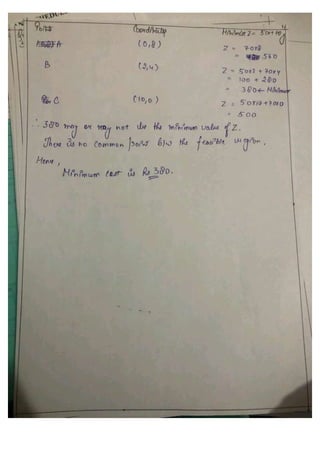 Points Coordinates Minimise Z = 50x+70y
A (0,8) Z = 70×8
= 560
B (2,4) Z = 50×2+70×4
= 100 + 280
= 380 ← Minimum
C (10,0) Z = 50×10+70×0
= 500
∴ 380 may or may not be the minimum value of Z.
There is no common point b/w the feasible region.
Hence,
Minimum cost is Rs 380.